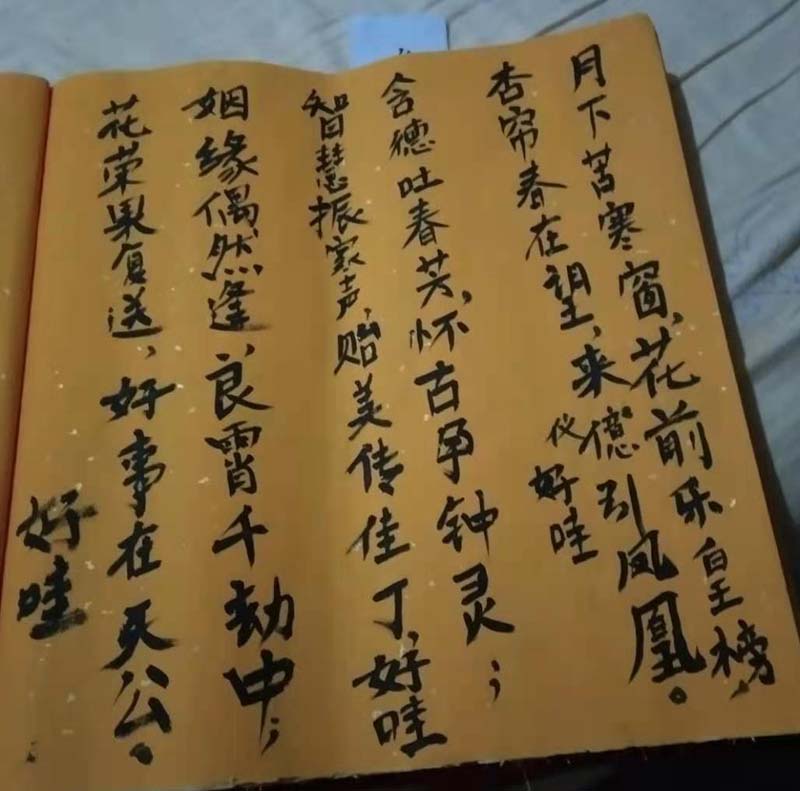 月下苦寒窗,花前乐皇榜,
杏帘春在望,来引凤凰。
仪好哇
含德吐春芳,怀古孕钟灵;
智慧振家声,贻美传佳丁,好哇
姻缘偶然逢,良霄千劫中;
花荣果复送,好事在天公。
好哇